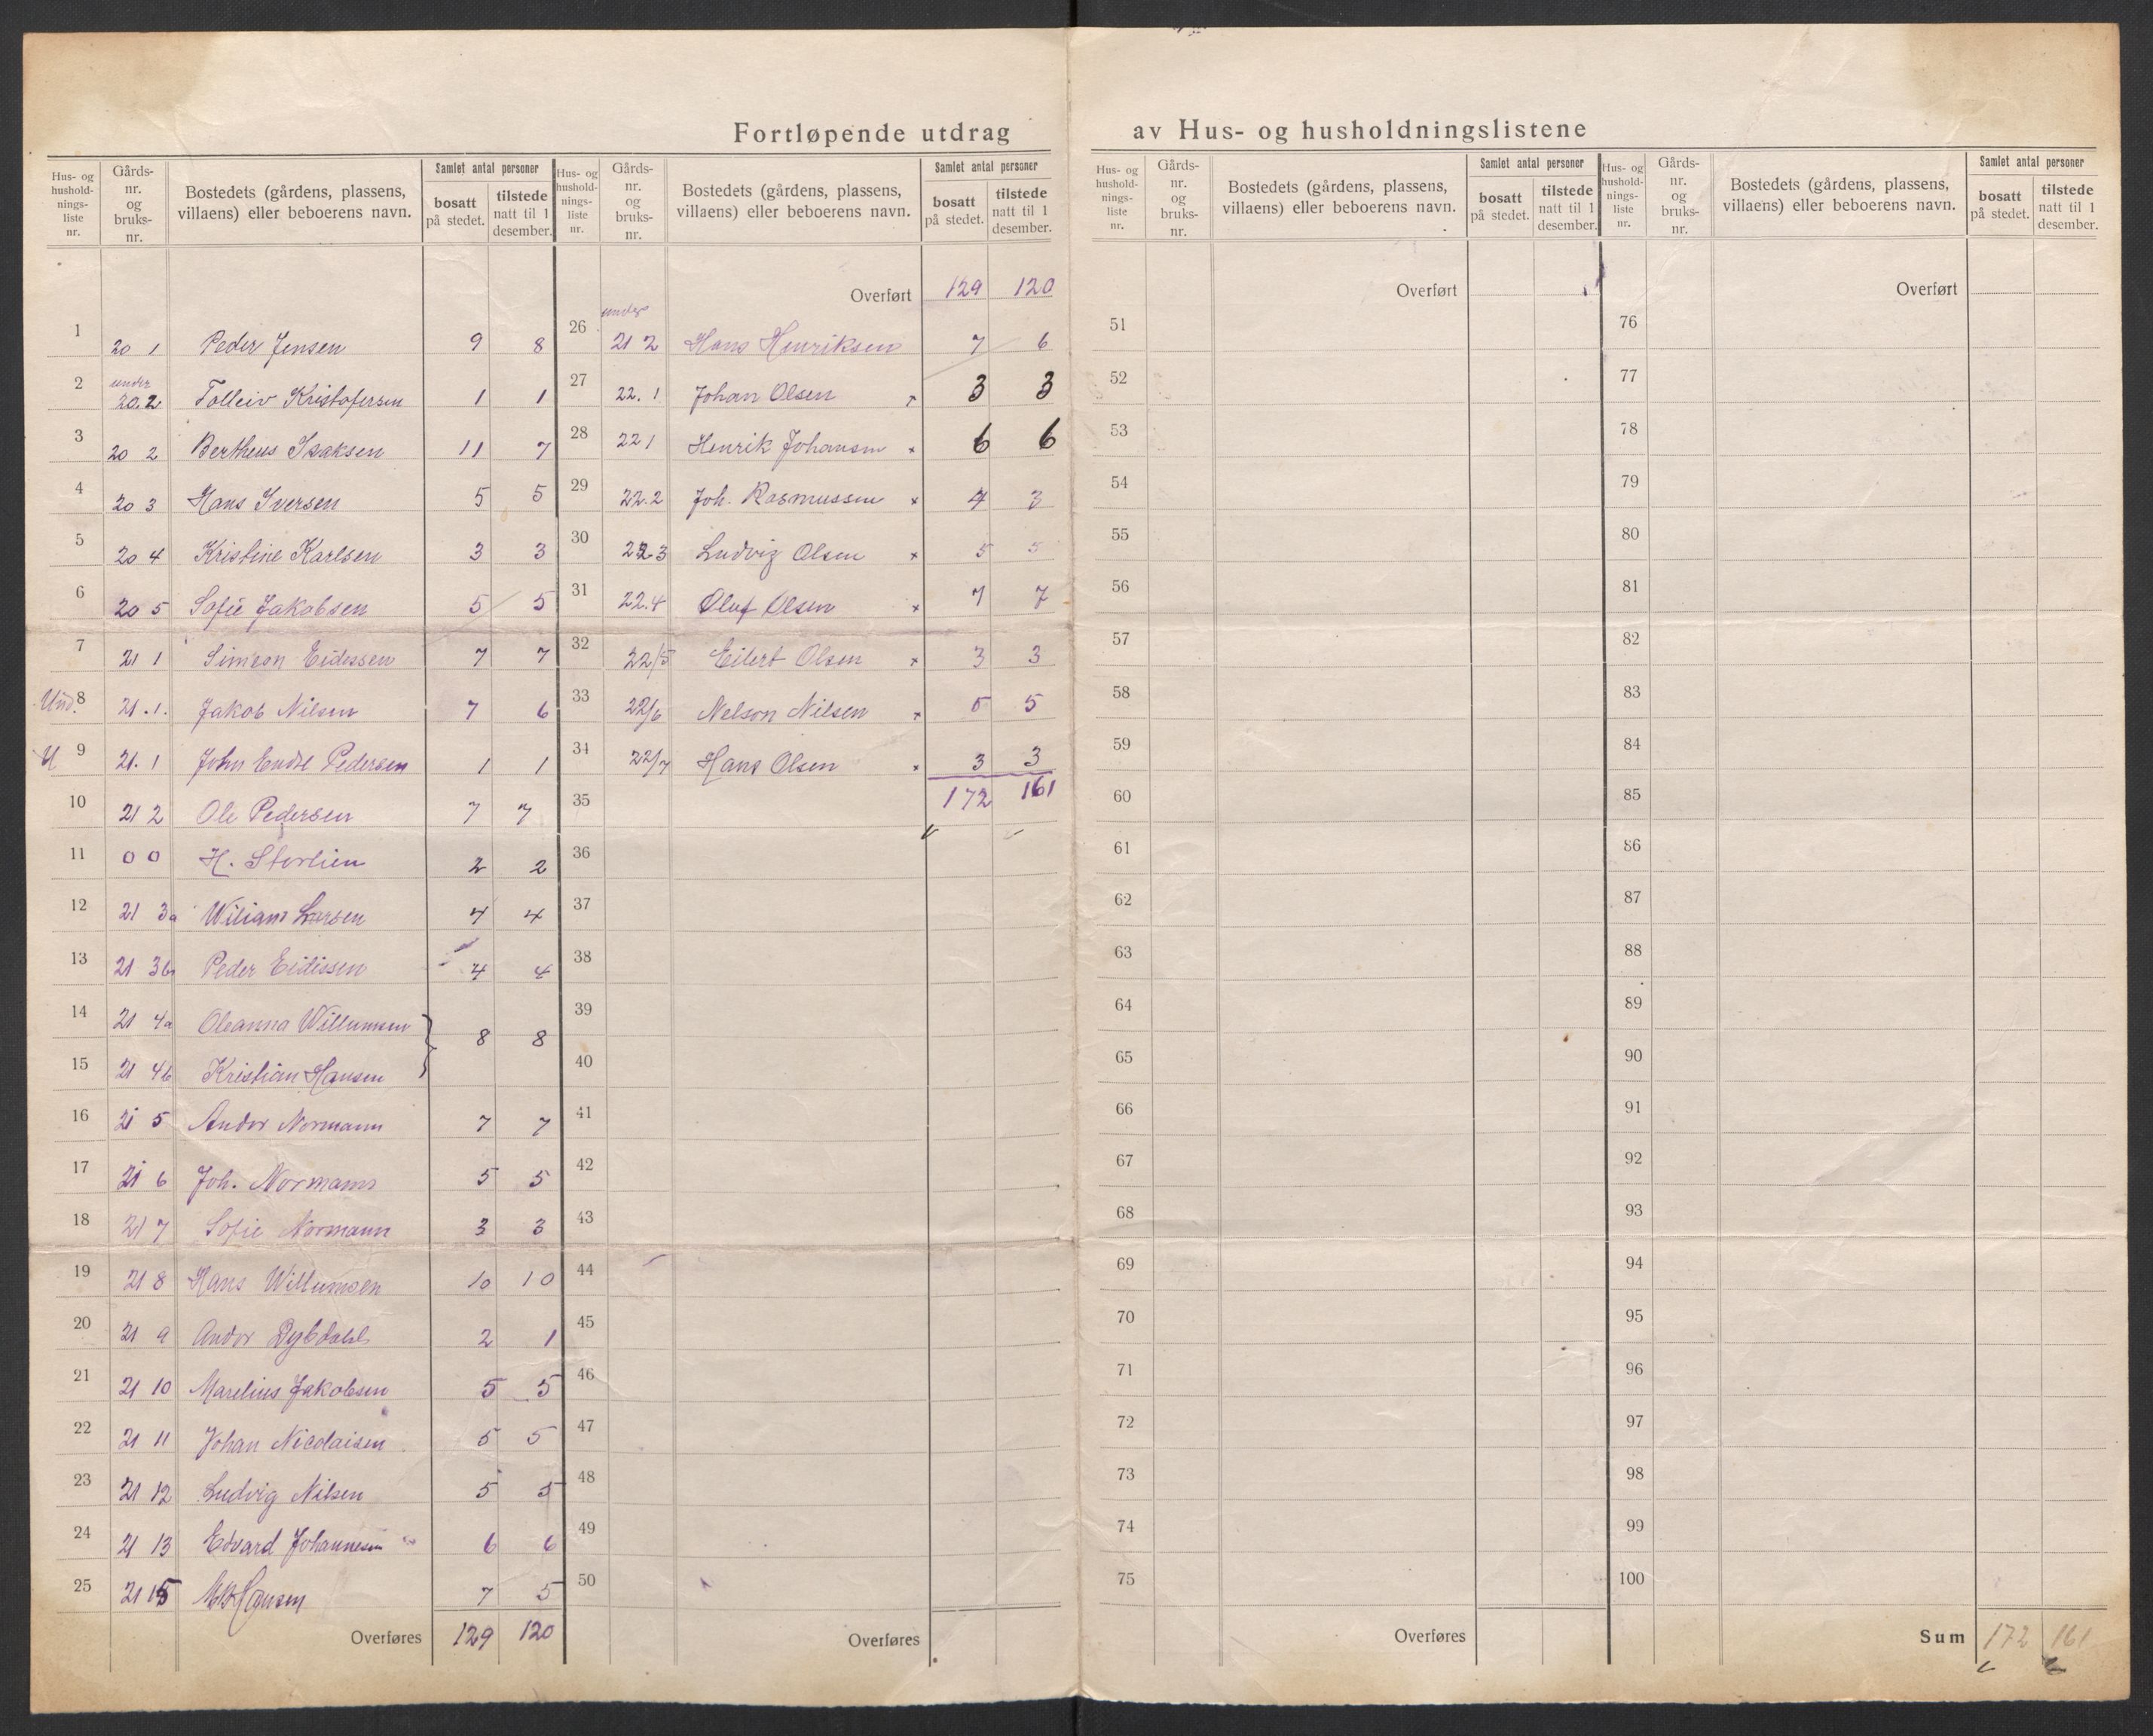 Fortløpende utdrag av Hus- og husholdningslistene
Hus- og hushold-nings-liste nr. Gårds-nr. og bruks-nr. Bostedets (gårdens, plassens, villaens) eller beboerens navn. Samlet antal personer bosatt på stedet. tilstede natt til 1 desember.
1 20 1 Peder Jensen 9 8
2 under 20.2 Tolleiv Kristofersen 1 1
3 20 2 Bertheus Isaksen 11 7
4 20 3 Hans Iversen 5 5
5 20 4 Kristine Karlsen 3 3
6 20 5 Sofie Jakobsen 5 5
7 21 1 Simeon Eidessen 7 7
Und. 8 21.1. Jakob Nilsen 7 6
U 9 21.1 John Endre Pedersen 1 1
10 21 2 Ole Pedersen 7 7
11 0 0 H. Storlien 2 2
12 21 3a Wiliam Larsen 4 4
13 21 3b Peder Eidissen 4 4
14 21 4a Oleanna Willumsen
8 8
15 21 4b Kristian Hansen
16 21 5 Andor Normann 7 7
17 21 6 Joh. Normann 5 5
18 21 7 Sofie Normann 3 3
19 21 8 Hans Willumsen 10 10
20 21 9 Andor Dybdahl 2 1
21 21 10 Marelius Jakobsen 5 5
22 21 11 Johan Nicolaisen 5 5
23 21 12 Ludvig Nilsen 5 5
24 21 13 Edvard Johannesen 6 6
25 21 15 Hansen 7 5
Overføres 129 120
Hus- og hushold-nings-liste nr. Gårds-nr. og bruks-nr. Bostedets (gårdens, plassens, villaens) eller beboerens navn. Samlet antal personer bosatt på stedet. tilstede natt til 1 desember.
Overført 129 120
26 under 21 2 Hans Henriksen 7 6
27 22.1 Johan Olsen x 3 3
28 22 1 Henrik Johansen x 6 6
29 22.2 Joh. Rasmussen x 4 3
30 22.3 Ludvig Olsen x 5 5
31 22.4 Oluf Olsen x 7 7
32 22/5 Eilert Olsen x 3 3
33 22/6 Nelson Nilsen x 5 5
34 22/7 Hans Olsen x 3 3
35 172 161
36
37
38
39
40
41
42
43
44
45
46
47
48
49
50
Overføres
Hus- og hushold-nings-liste nr. Gårds-nr. og bruks-nr. Bostedets (gårdens, plassens, villaens) eller beboerens navn. Samlet antal personer bosatt på stedet. tilstede natt til 1 desember.
Overført
51
52
53
54
55
56
57
58
59
60
61
62
63
64
65
66
67
68
69
70
71
72
73
74
75
Overføres
Hus- og hushold-nings-liste nr. Gårds-nr. og bruks-nr. Bostedets (gårdens, plassens, villaens) eller beboerens navn. Samlet antal personer bosatt på stedet. tilstede natt til 1 desember.
Overført
76
77
78
79
80
81
82
83
84
85
86
87
88
89
90
91
92
93
94
95
96
97
98
99
100
Sum 172 161